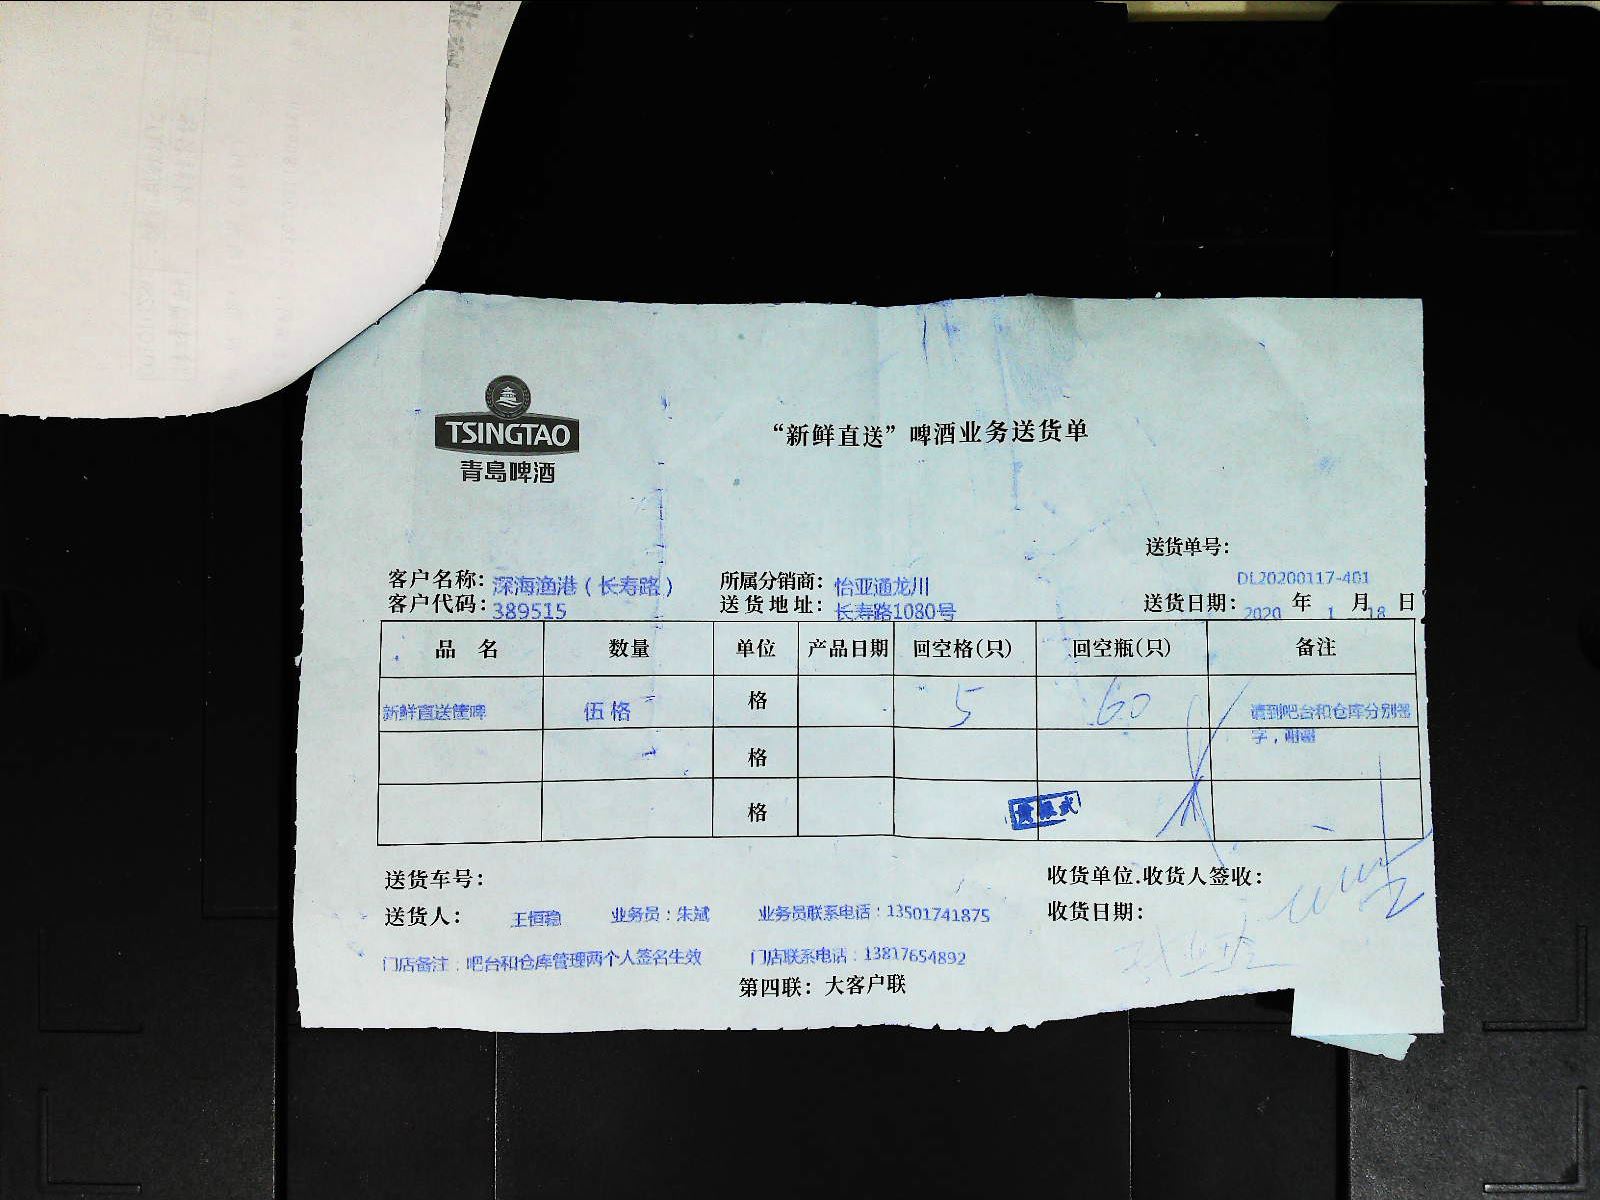 TSINGTAO
青島啤酒
“新鲜直送”啤酒业务送货单
送货单号：
DL20200117-401
客户名称：深海渔港（长寿路） 所属分销商：怡亚通龙川
客户代码：389515 送货地址：长寿路1080号 送货日期：2020 年 1 月 18 日
品 名 数量 单位 产品日期 回空格(只) 回空瓶(只) 备注
新鲜直送筐啤 伍格 格 5 60 请到吧台和仓库分别签
字，谢谢
格
格
送货车号： 收货单位.收货人签收：
送货人： 王恒稳 业务员：朱斌 业务员联系电话：13501741875 收货日期：
门店备注：吧台和仓库管理两个人签名生效 门店联系电话：13817654892
第四联：大客户联